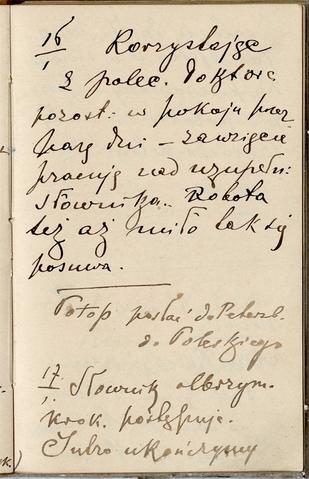 16/1 Korzystając
z polec. doktora
pozost: w pokoju przez
parę dni – zawzięcie
pracuję nad uzupełn:
Słownika. Robota
też aż miło tak się
posuwa.
Potop posłać do Petersb.
do Poleskiego
17/1. Słownik olbrzym.
krok. postępuje.
Jutro ukończymy
k.)